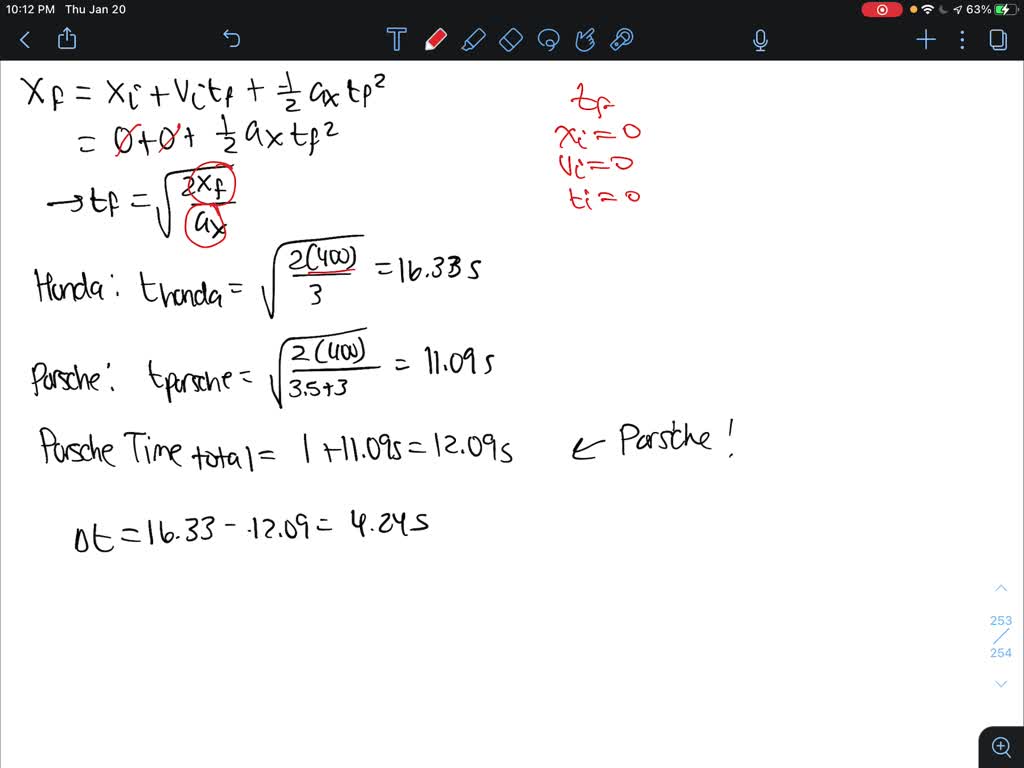 10:12 PM Thu Jan 20
63%
T
Xf = Xi + Vitf + 1/2 axtf²
= 0+0+ 1/2 axtf²
→ tf = √(2xf/ax)
tf
xi = 0
vi = 0
ti = 0
Honda: thonda = √(2(400)/3) = 16.33s
Porsche: tporsche = √(2(400)/3.5+3) = 11.09s
Porsche Time total = 1+11.09s = 12.09s
← Porsche!
Δt = 16.33 - 12.09 = 4.24s
253
254